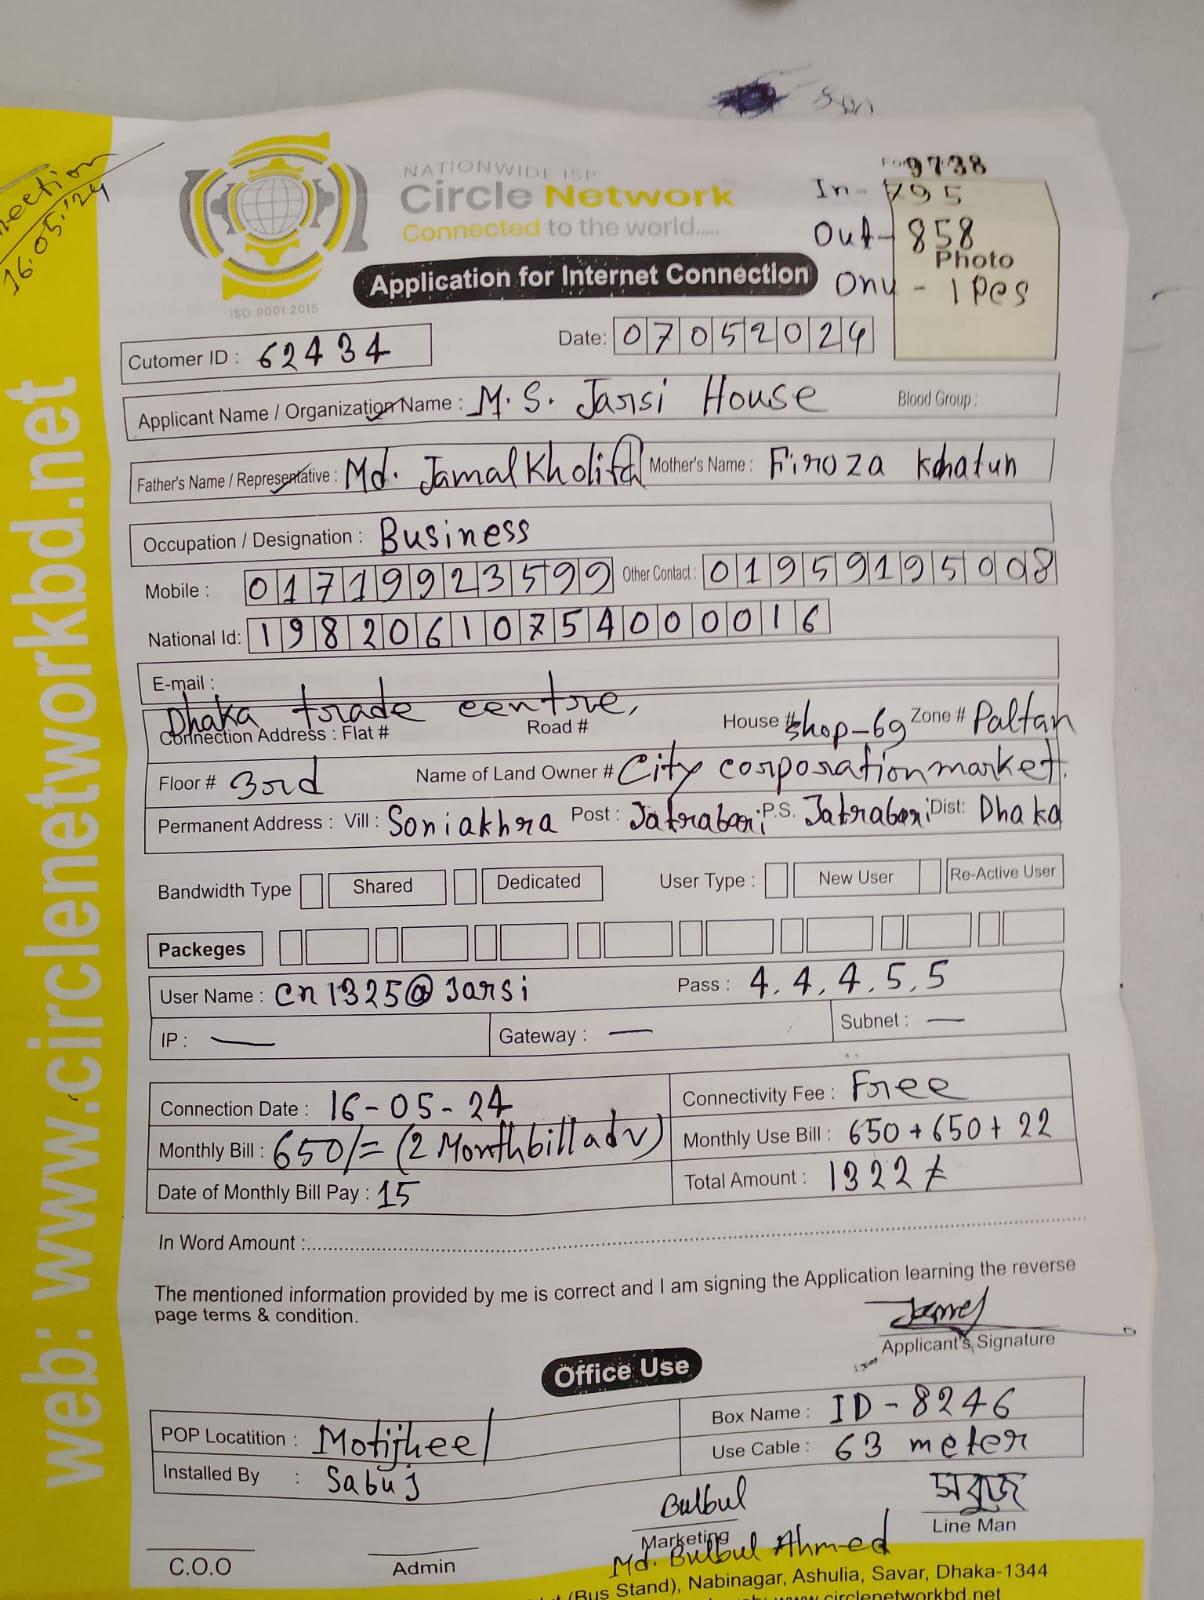 16.05.24
NATIONWIDE ISP
Circle Network
Connected to the world.....
ISO 9001:2015
9738
In- 795
Out- 858
Photo
Onu - 1 Pcs
Application for Internet Connection
Cutomer ID : 62434
Date: 07052024
Applicant Name / Organization Name : M.S. Jarsi House Blood Group :
Father's Name / Representative : Md. Jamal Kholifa Mother's Name : Firoza Khatun
Occupation / Designation : Business
Mobile : 01719923599 Other Contact : 01959195008
National Id: 19820610754000016
E-mail :
Dhaka trade centre,
Connection Address : Flat # Road # House # shop-69 Zone # Paltan
Floor # 3rd Name of Land Owner # City corporation market.
Permanent Address : Vill : Soniakhra Post : Jatrabari P.S. Jatrabari Dist: Dhaka
Bandwidth Type Shared Dedicated User Type : New User Re-Active User
Packeges
User Name : cn1325@Jarsi Pass : 4,4,4,5,5
IP : — Gateway : — Subnet : —
Connection Date : 16-05-24 Connectivity Fee : Free
Monthly Bill : 650/= (2 Monthbill adv) Monthly Use Bill : 650+650+22
Date of Monthly Bill Pay : 15 Total Amount : 1322/
In Word Amount :
The mentioned information provided by me is correct and I am signing the Application learning the reverse
page terms & condition.
Jamal
Applicant's Signature
Office Use
POP Locatition : Motijheel Box Name : ID-8246
Installed By : Sabuj Use Cable : 63 meter
Bulbul সবুজ
Marketing Line Man
Md. Bulbul Ahmed
C.O.O Admin
(Bus Stand), Nabinagar, Ashulia, Savar, Dhaka-1344
www.circlenetworkbd.net
web: www.circlenetworkbd.net